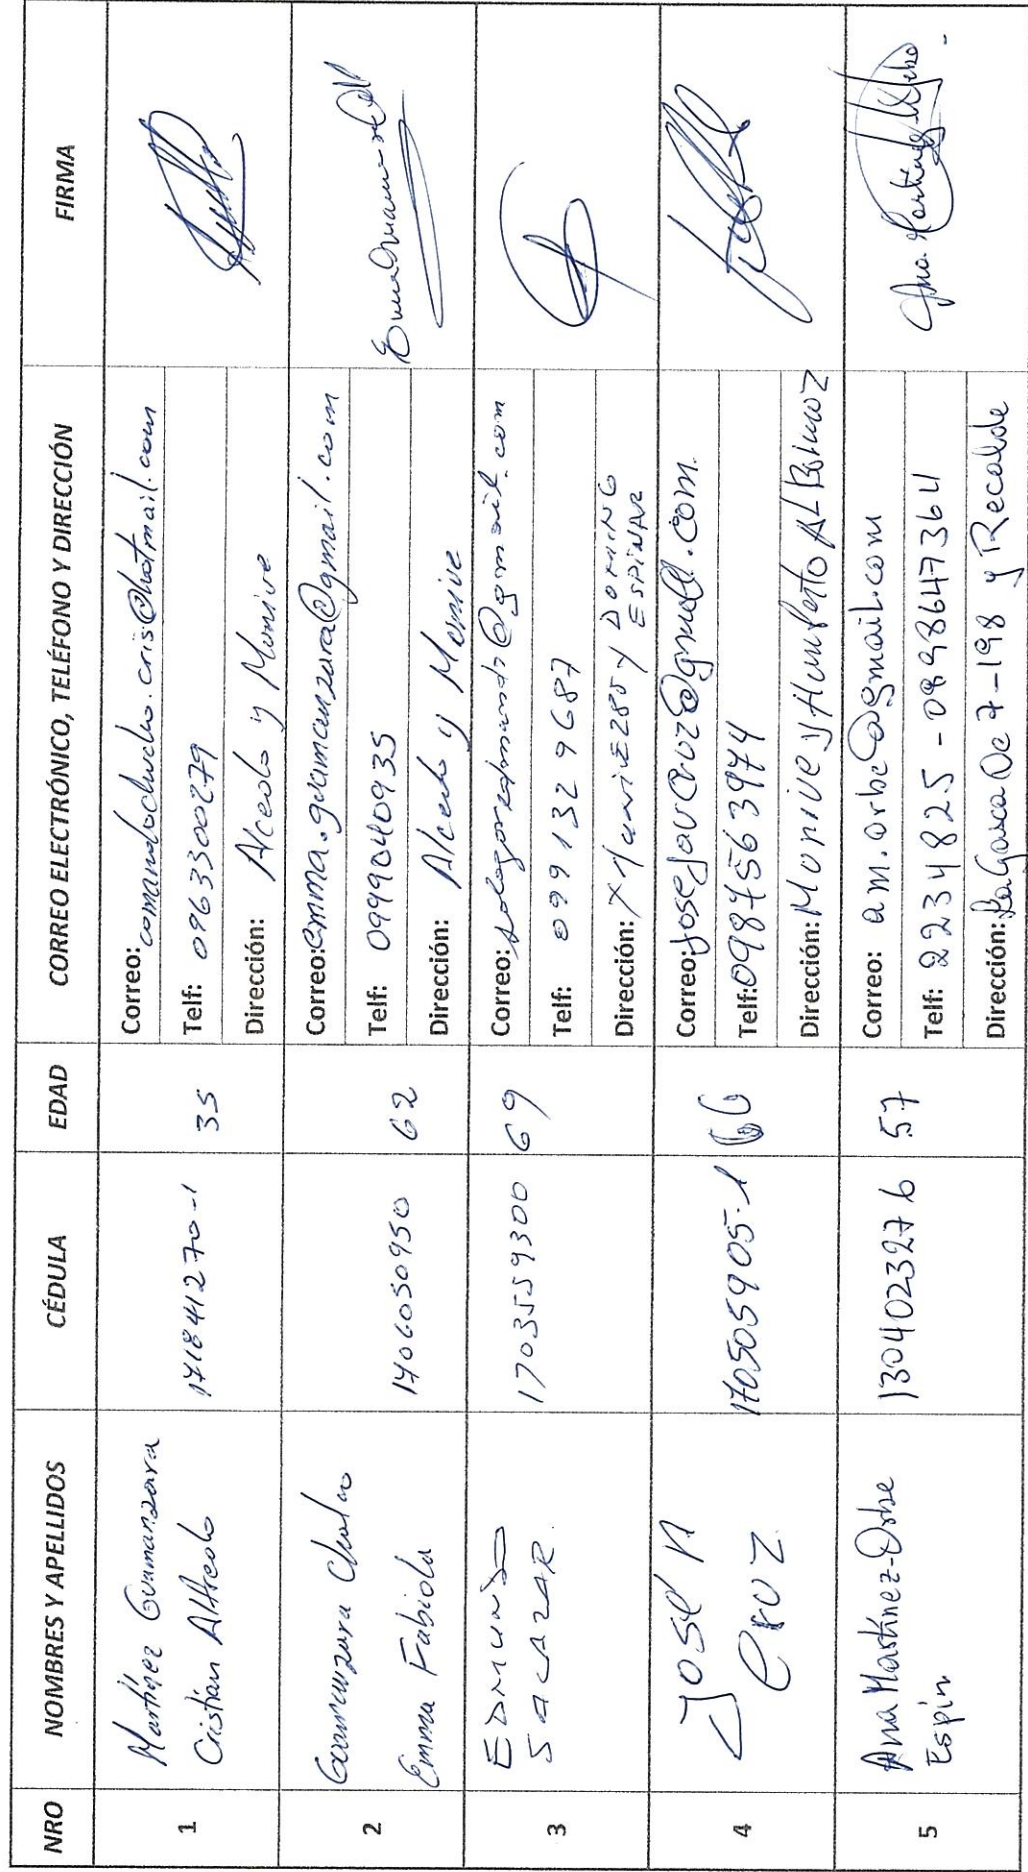 NRO NOMBRES Y APELLIDOS CÉDULA EDAD CORREO ELECTRÓNICO, TELÉFONO Y DIRECCIÓN FIRMA
1
Martínez Guamanzara
Cristian Alfredo
171841270-1
35
Correo: comandochucho.cris@hotmail.com
Telf: 0963300279
Dirección: Alcedo y Monive
2
Guamanzara
Emma Fabiola
1706050950
62
Correo: emma.guamanzara@gmail.com
Telf: 0999040935
Dirección: Alcedo y Monive
3
EDMUNDO
SALAZAR.
1703559300
69
Correo: @gmail.com
Telf: 0991329687
Dirección: Y DOMING
ESPINAR
4
José N
Cruz
170505905-1
66
Correo: @gmail.com.
Telf: 0987563974
Dirección: Monive y Humberto Albornoz
5
Ana Martínez-Orbe
Espín
1304023276
57
Correo: am.orbe@gmail.com
Telf: 2234825 - 0898647364
Dirección: La Gasca Oe 7-198 y Recalde
Ana Martínez